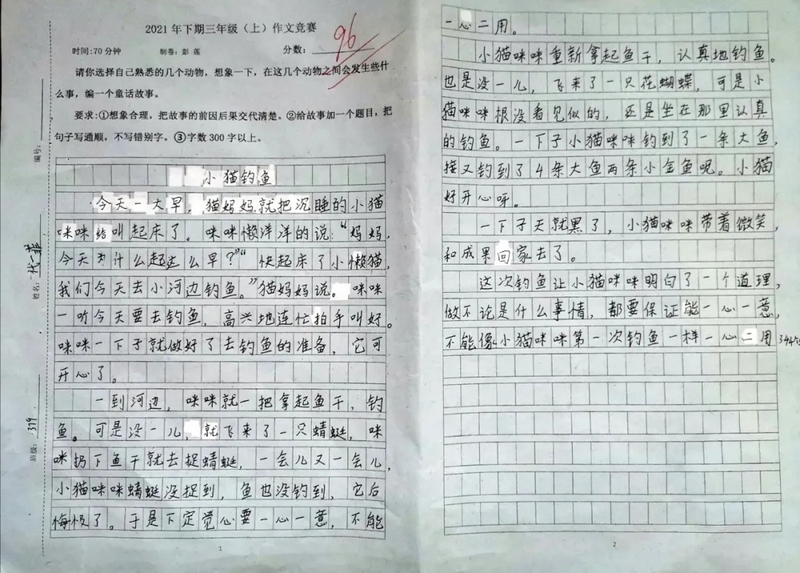 2021 年下期三年级（上）作文竞赛
时间:70分钟 制卷: 彭 莲 分数:
96
请你选择自己熟悉的几个动物，想象一下，在这几个动物之间会发生些什
么事，编一个童话故事。
要求:①想象合理，把故事的前因后果交代清楚。②给故事加一个题目，把
句子写通顺，不写错别字。③字数 300 字以上。
小猫钓鱼
今天一大早，猫妈妈就把沉睡的小猫
咪咪给叫起床了。咪咪懒洋洋的说:“妈妈，
今天为什么起这么早？”“快起床了小懒猫，
我们今天去小河边钓鱼。”猫妈妈说。咪咪
一听今天要去钓鱼，高兴地连忙拍手叫好。
咪咪一下子就做好了去钓鱼的准备，它可
开心了。
一到河边，咪咪就一把拿起鱼干，钓
鱼。可是没一儿，就飞来了一只蜻蜓，咪
咪扔下鱼干就去捉蜻蜓，一会儿又一会儿，
小猫咪咪蜻蜓没捉到，鱼也没钓到，它后
悔极了。于是下定觉心要一心一意，不能
1
编号:
姓名:
班级: 319
一心二用。
小猫咪咪重新拿起鱼干，认真地钓鱼。
也是没一儿，飞来了一只花蝴蝶，可是小
猫咪咪根没看见似的，还是坐在那里认真
的钓鱼。一下子小猫咪咪钓到了一条大鱼，
接又钓到了4条大鱼两条小金鱼呢。小猫
好开心呀。
一下子天就黑了，小猫咪咪带着微笑，
和成果回家去了。
这次钓鱼让小猫咪咪明白了一个道理，
做不论是什么事情，都要保证能一心一意，
不能像小猫咪咪第一次钓鱼一样一心二用
2